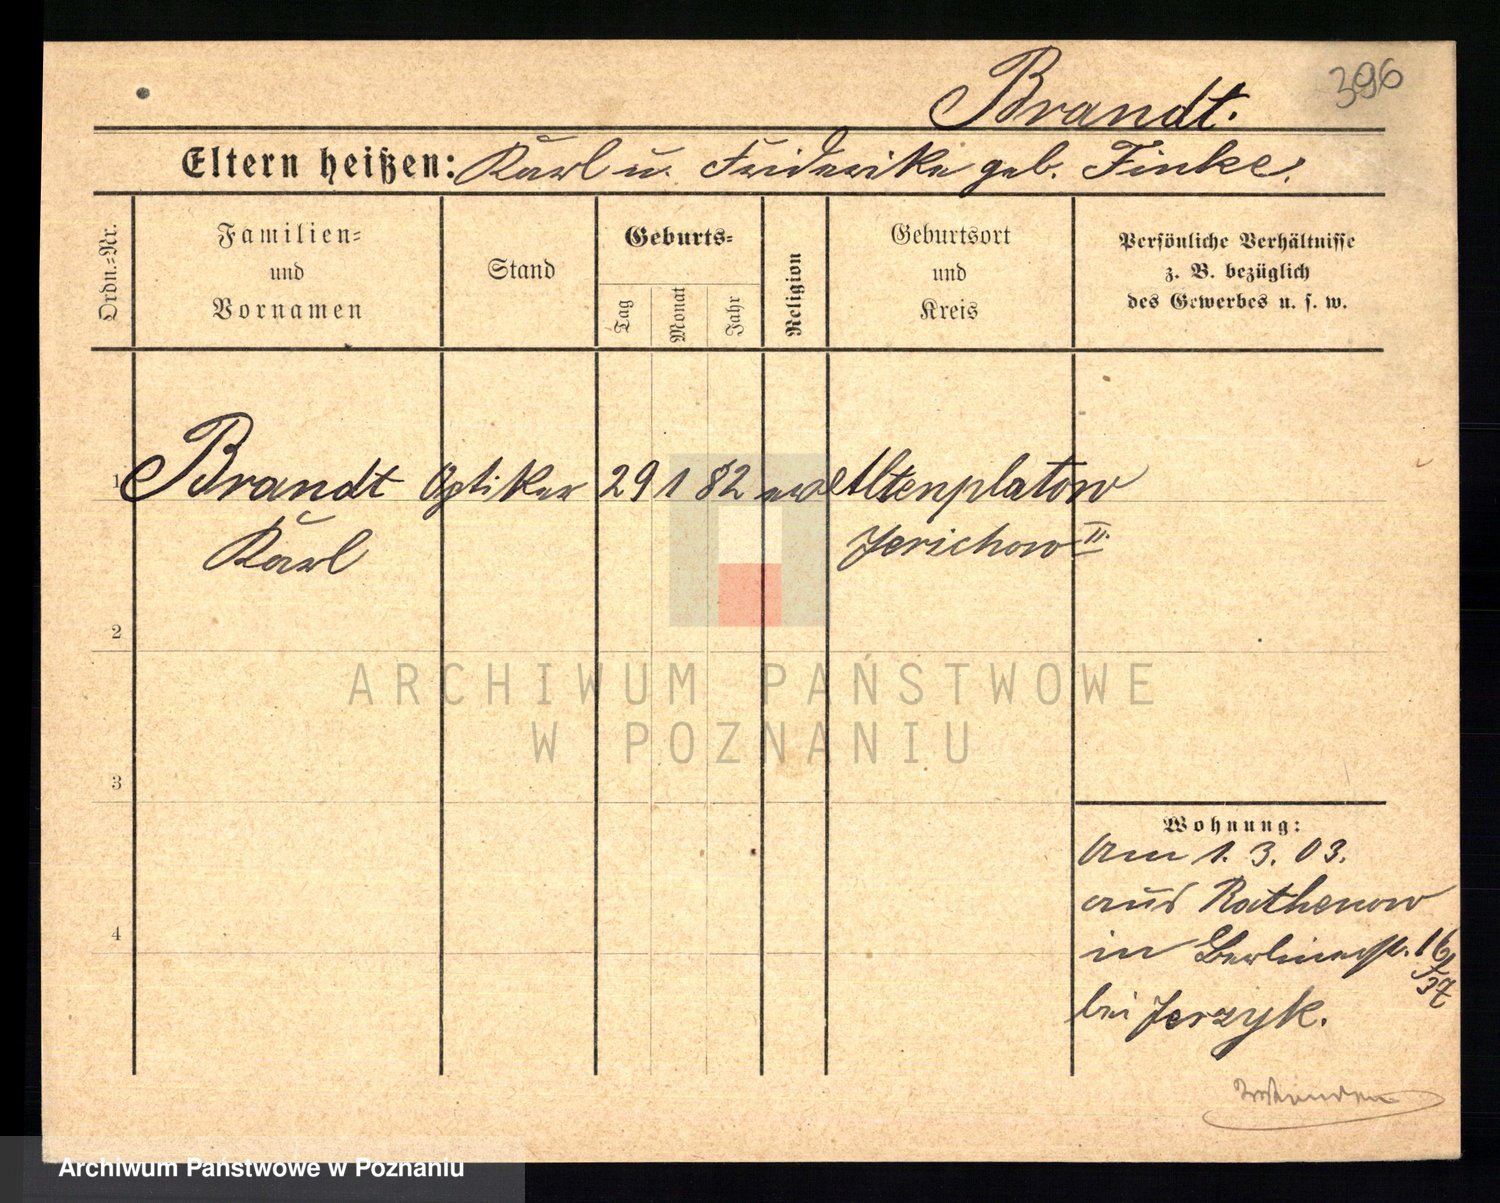 396
Brandt.
Eltern heißen: Karl u. Friderike geb. Finke.
Ordn.-Nr.
Familien-
und
Vornamen
Stand
Geburts-
Tag
Monat
Jahr
Religion
Geburtsort
und
Kreis
Persönliche Verhältnisse
z. B. bezüglich
des Gewerbes u. s. w.
1 Brandt Optiker 29 1 82 ev Altenplatow
Karl Jerichow II.
2
ARCHIWUM PAŃSTWOWE
W POZNANIU
3
4
Wohnung:
Am 1. 3. 03.
aus Rathenow
in Berlinerstr. 16
bei Jerzyk.
Archiwum Państwowe w Poznaniu